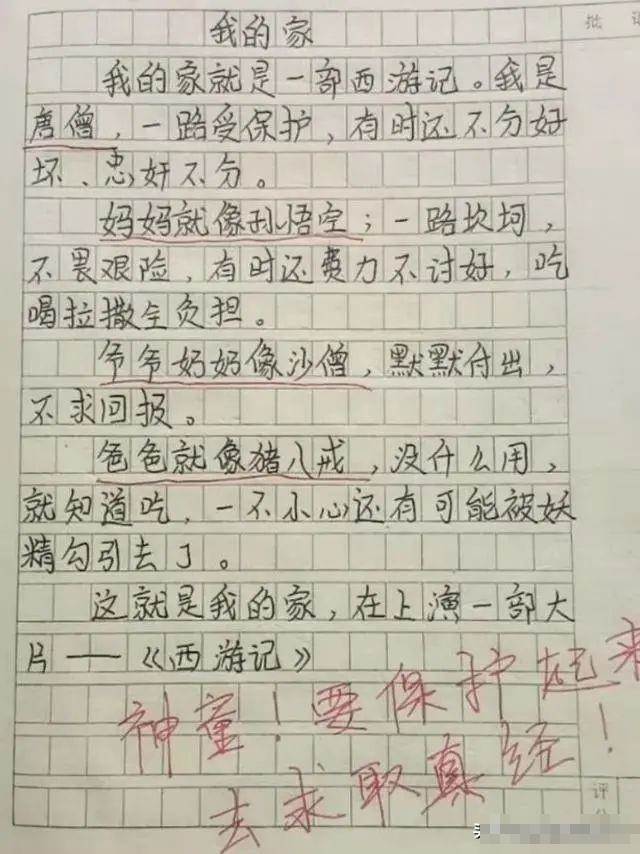 我的家
批
我的家就是一部西游记。我是
唐僧，一路受保护，有时还不分好
坏、忠奸不分。
妈妈就像孙悟空；一路坎坷，
不畏艰险，有时还费力不讨好，吃
喝拉撒全负担。
爷爷奶奶像沙僧，默默付出，
不求回报。
爸爸就像猪八戒，没什么用，
就知道吃，一不小心还有可能被妖
精勾引去了。
这就是我的家，在上演一部大
片——《西游记》
神童！要保护起来
去求取真经！
评